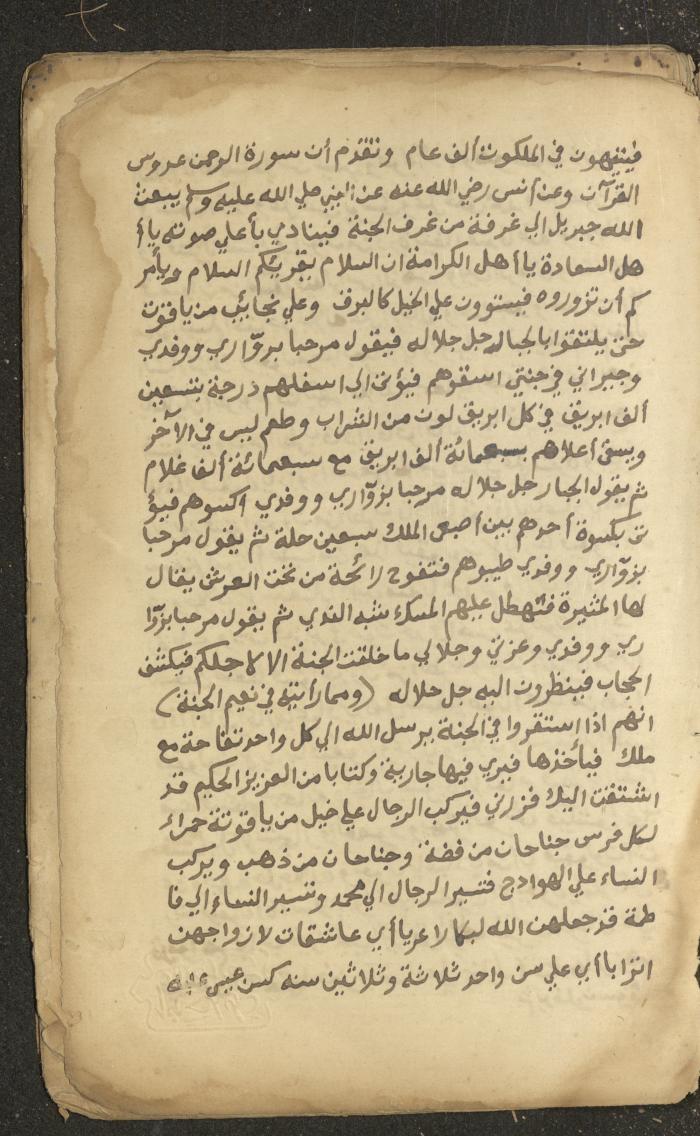 فيتيهون في الملكوت ألف عام وتقدم أن سورة الرحمن عروس
القرآن وعن أنس رضي الله عنه عن النبي صلي الله عليه وسلم يبعث
الله جبريل الي غرفة من غرف الجنة فينادي بأعلي صوته يا أ
هل السعادة يا أهل الكرامة ان السلام يقريئكم السلام ويأمر
كم أن تزوروه فيستوون علي الخيل كالبرق وعلي نجائب من ياقوت
حتي يلتقوا بالجبار جل جلاله فيقول مرحبا بزوّاري ووفدي
وجيراني في جنتي اسقوهم فيؤتي الي اسفلهم درجة بتسعين
ألف ابريق في كل ابريق لون من الشراب وطعم ليس في الآخر
ويسقي أعلاهم بسبعمائة ألف ابريق مع سبعمائة ألف غلام
ثم يقول الجبار جل جلاله مرحبا بزوّاري ووفدي اكسوهم فيؤ
تي بكسوة أحدهم بين أصبعي الملك سبعين حلة ثم يقول مرحبا
بزوّاري ووفدي طيبوهم فتفوح رائحة من تحت العرش يقال
لها المثيرة فتهطل عليهم المسك شبه الندي ثم يقول مرحبا بزوّا
ري ووفدي وعزتي وجلالي ما خلقت الجنة الا لاجلكم فيكشف
الحجاب فينظرون اليه جل جلاله (ومما رأيته في نعيم الجنة)
انهم اذا استقروا في الجنة يرسل الله الي كل واحد تفاحة مع
ملك فيأخذها فيري فيها جارية وكتابا من العزيز الحكيم قد
اشتقت اليك فزرني فيركب الرجال علي خيل من ياقوتة حمراء
لكل فرس جناحان من فضة وجناحان من ذهب ويركب
النساء علي الهوادج فتسير الرجال الي محمد وتسير النساء الي فا
طمة قد جعلهن الله ابكارا عربا أي عاشقات لازواجهن
اترابا أي علي سن واحد ثلاثة وثلاثين سنه كسن عيسي عليه